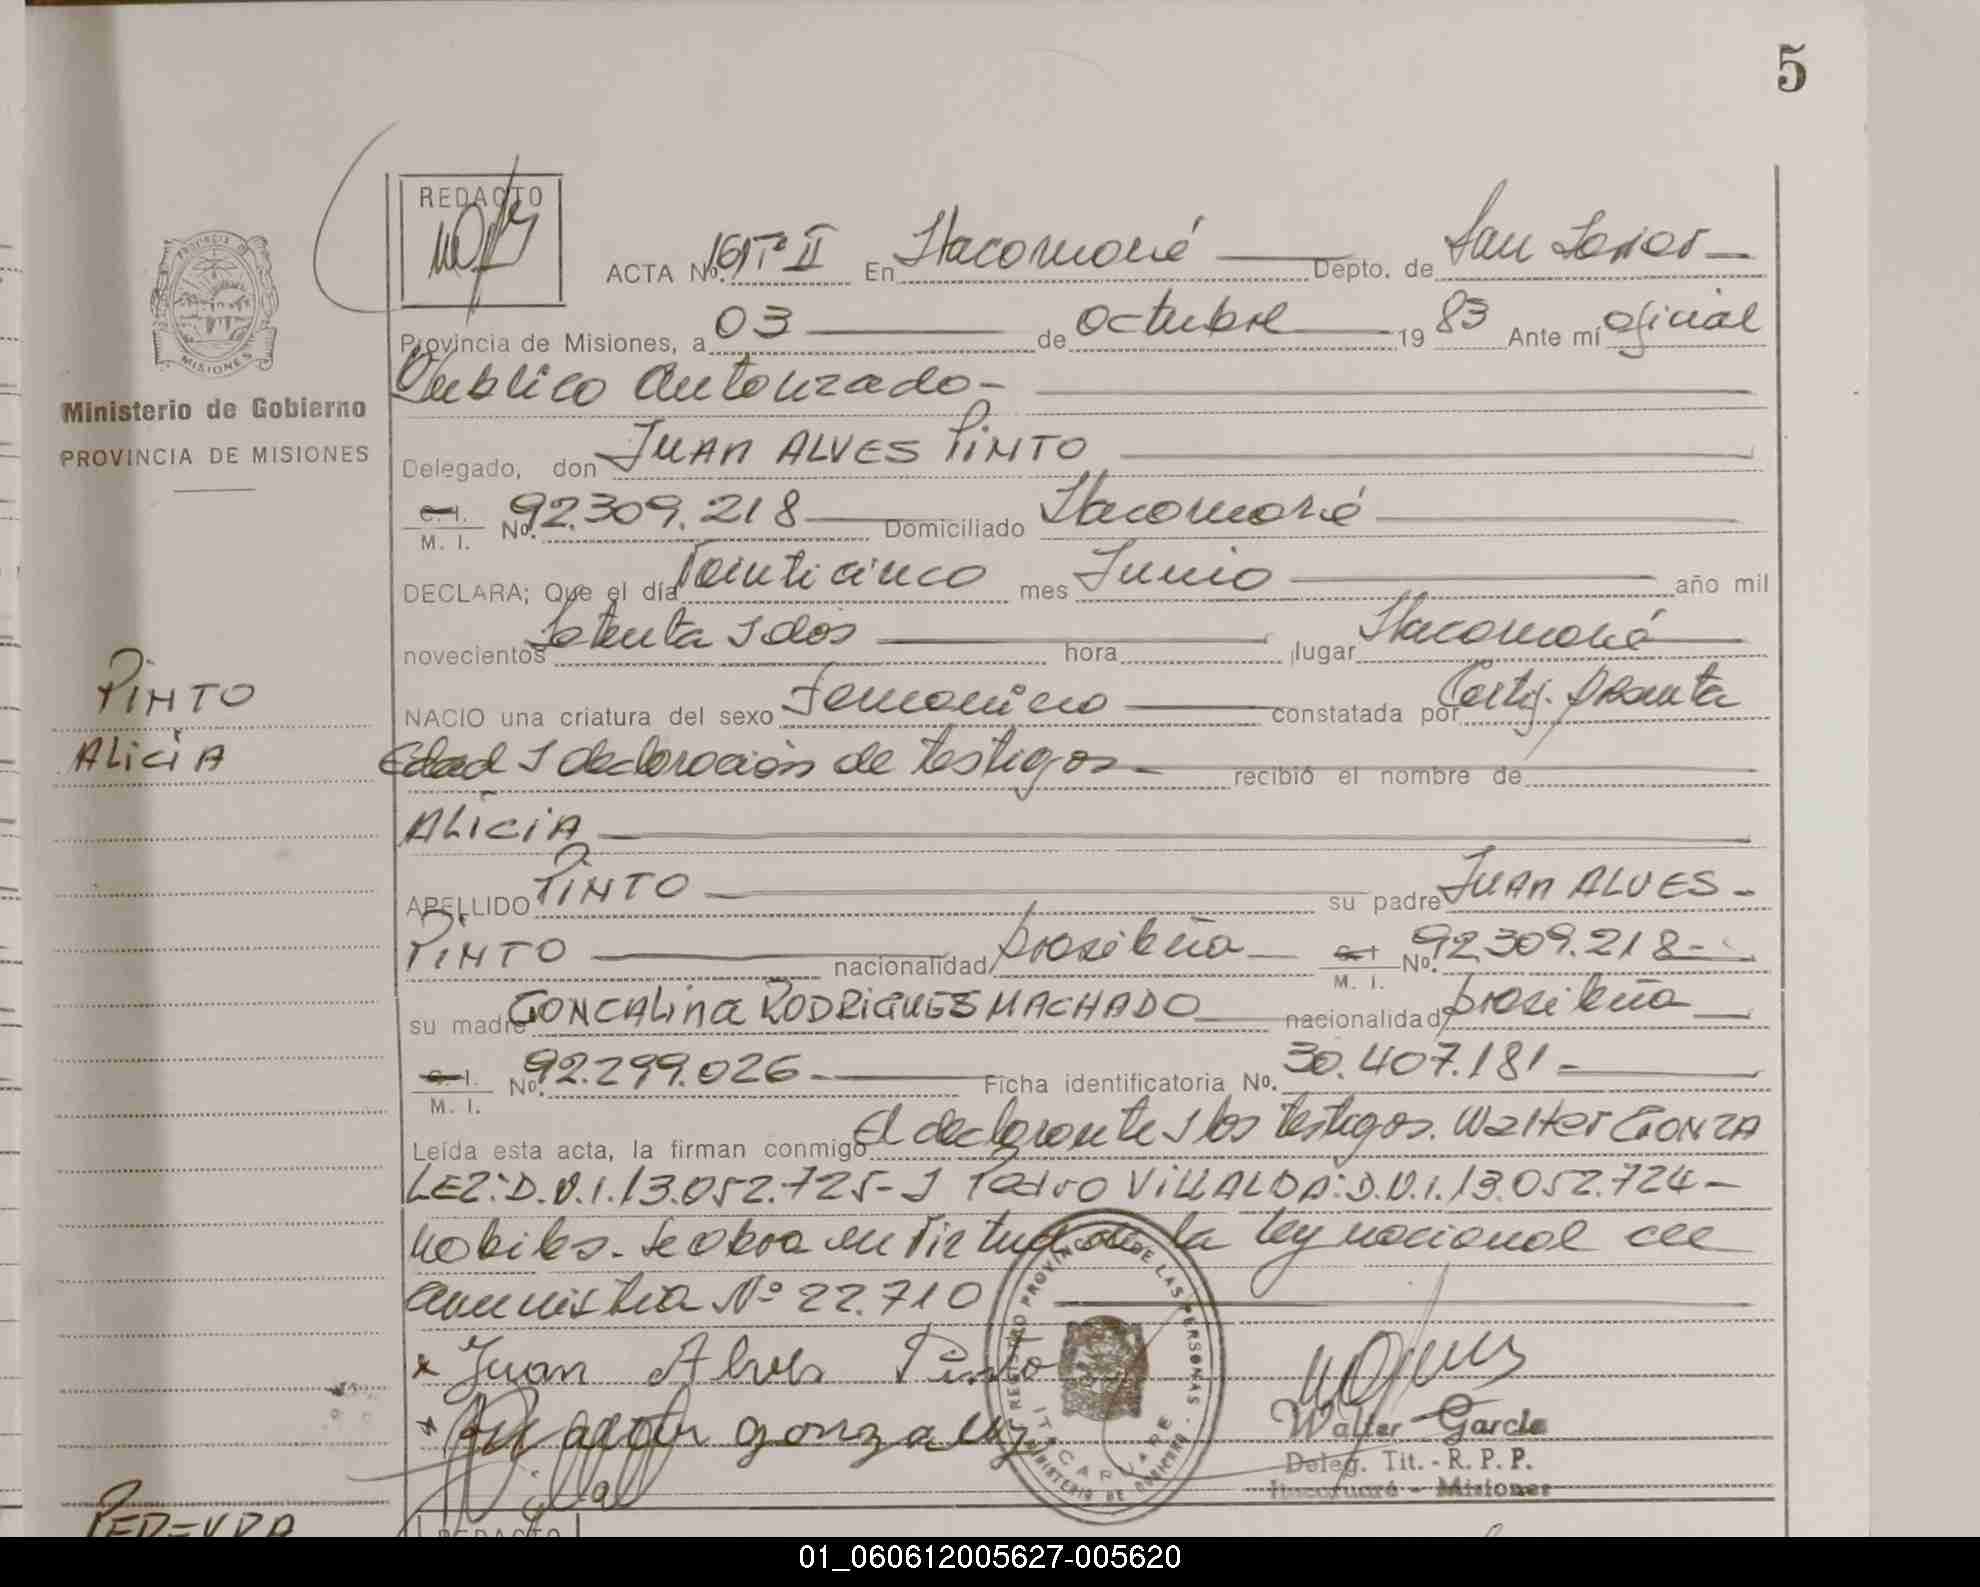 5
REDACTO
ACTA Nº. 161 Tº II En Itacaruaré Depto. de San Javier
Provincia de Misiones, a 03 de Octubre 19 83 Ante mí oficial
Público Autorizado-
Ministerio de Gobierno
PROVINCIA DE MISIONES
Delegado, don JUAN ALVES PINTO
C. I. M. I. Nº. 92.309.218 Domiciliado Itacaruaré
DECLARA; Que el día Veinticinco mes Junio año mil
novecientos Setenta y dos hora lugar Itacaruaré
PINTO
NACIO una criatura del sexo Femenino constatada por Certif. Presunta
ALiciA
Edad y declaración de testigos- recibió el nombre de
ALiciA
APELLIDO PINTO su padre JUAN ALVES-
PINTO nacionalidad brasileña C. I. M. I. Nº. 92.309.218-
su madre GONCALINA RODRIGUES MACHADO nacionalidad brasileña
C. I. M. I. Nº. 92.299.026- Ficha identificatoria No. 30.407.181-
Leída esta acta, la firman conmigo El declarante y los testigos. Walter GONZA
LEZ: D.N.I. 13.052.725- y Pedro VILLALDA: D.N.I. 13.052.724-
hábiles. Se obra en virtud de la ley nacional de
amnistia Nº 22.710
x Juan Alves Pinto
gonzalez
REGISTRO PROVINCIAL DE LAS PERSONAS
ITACARUARE
MINISTERIO DE GOBIERNO
Walter Garcia
Deleg. Tit. - R. P. P.
Itacaruaré - Misiones
PEREYRA
REDACTO
01_060612005627-005620